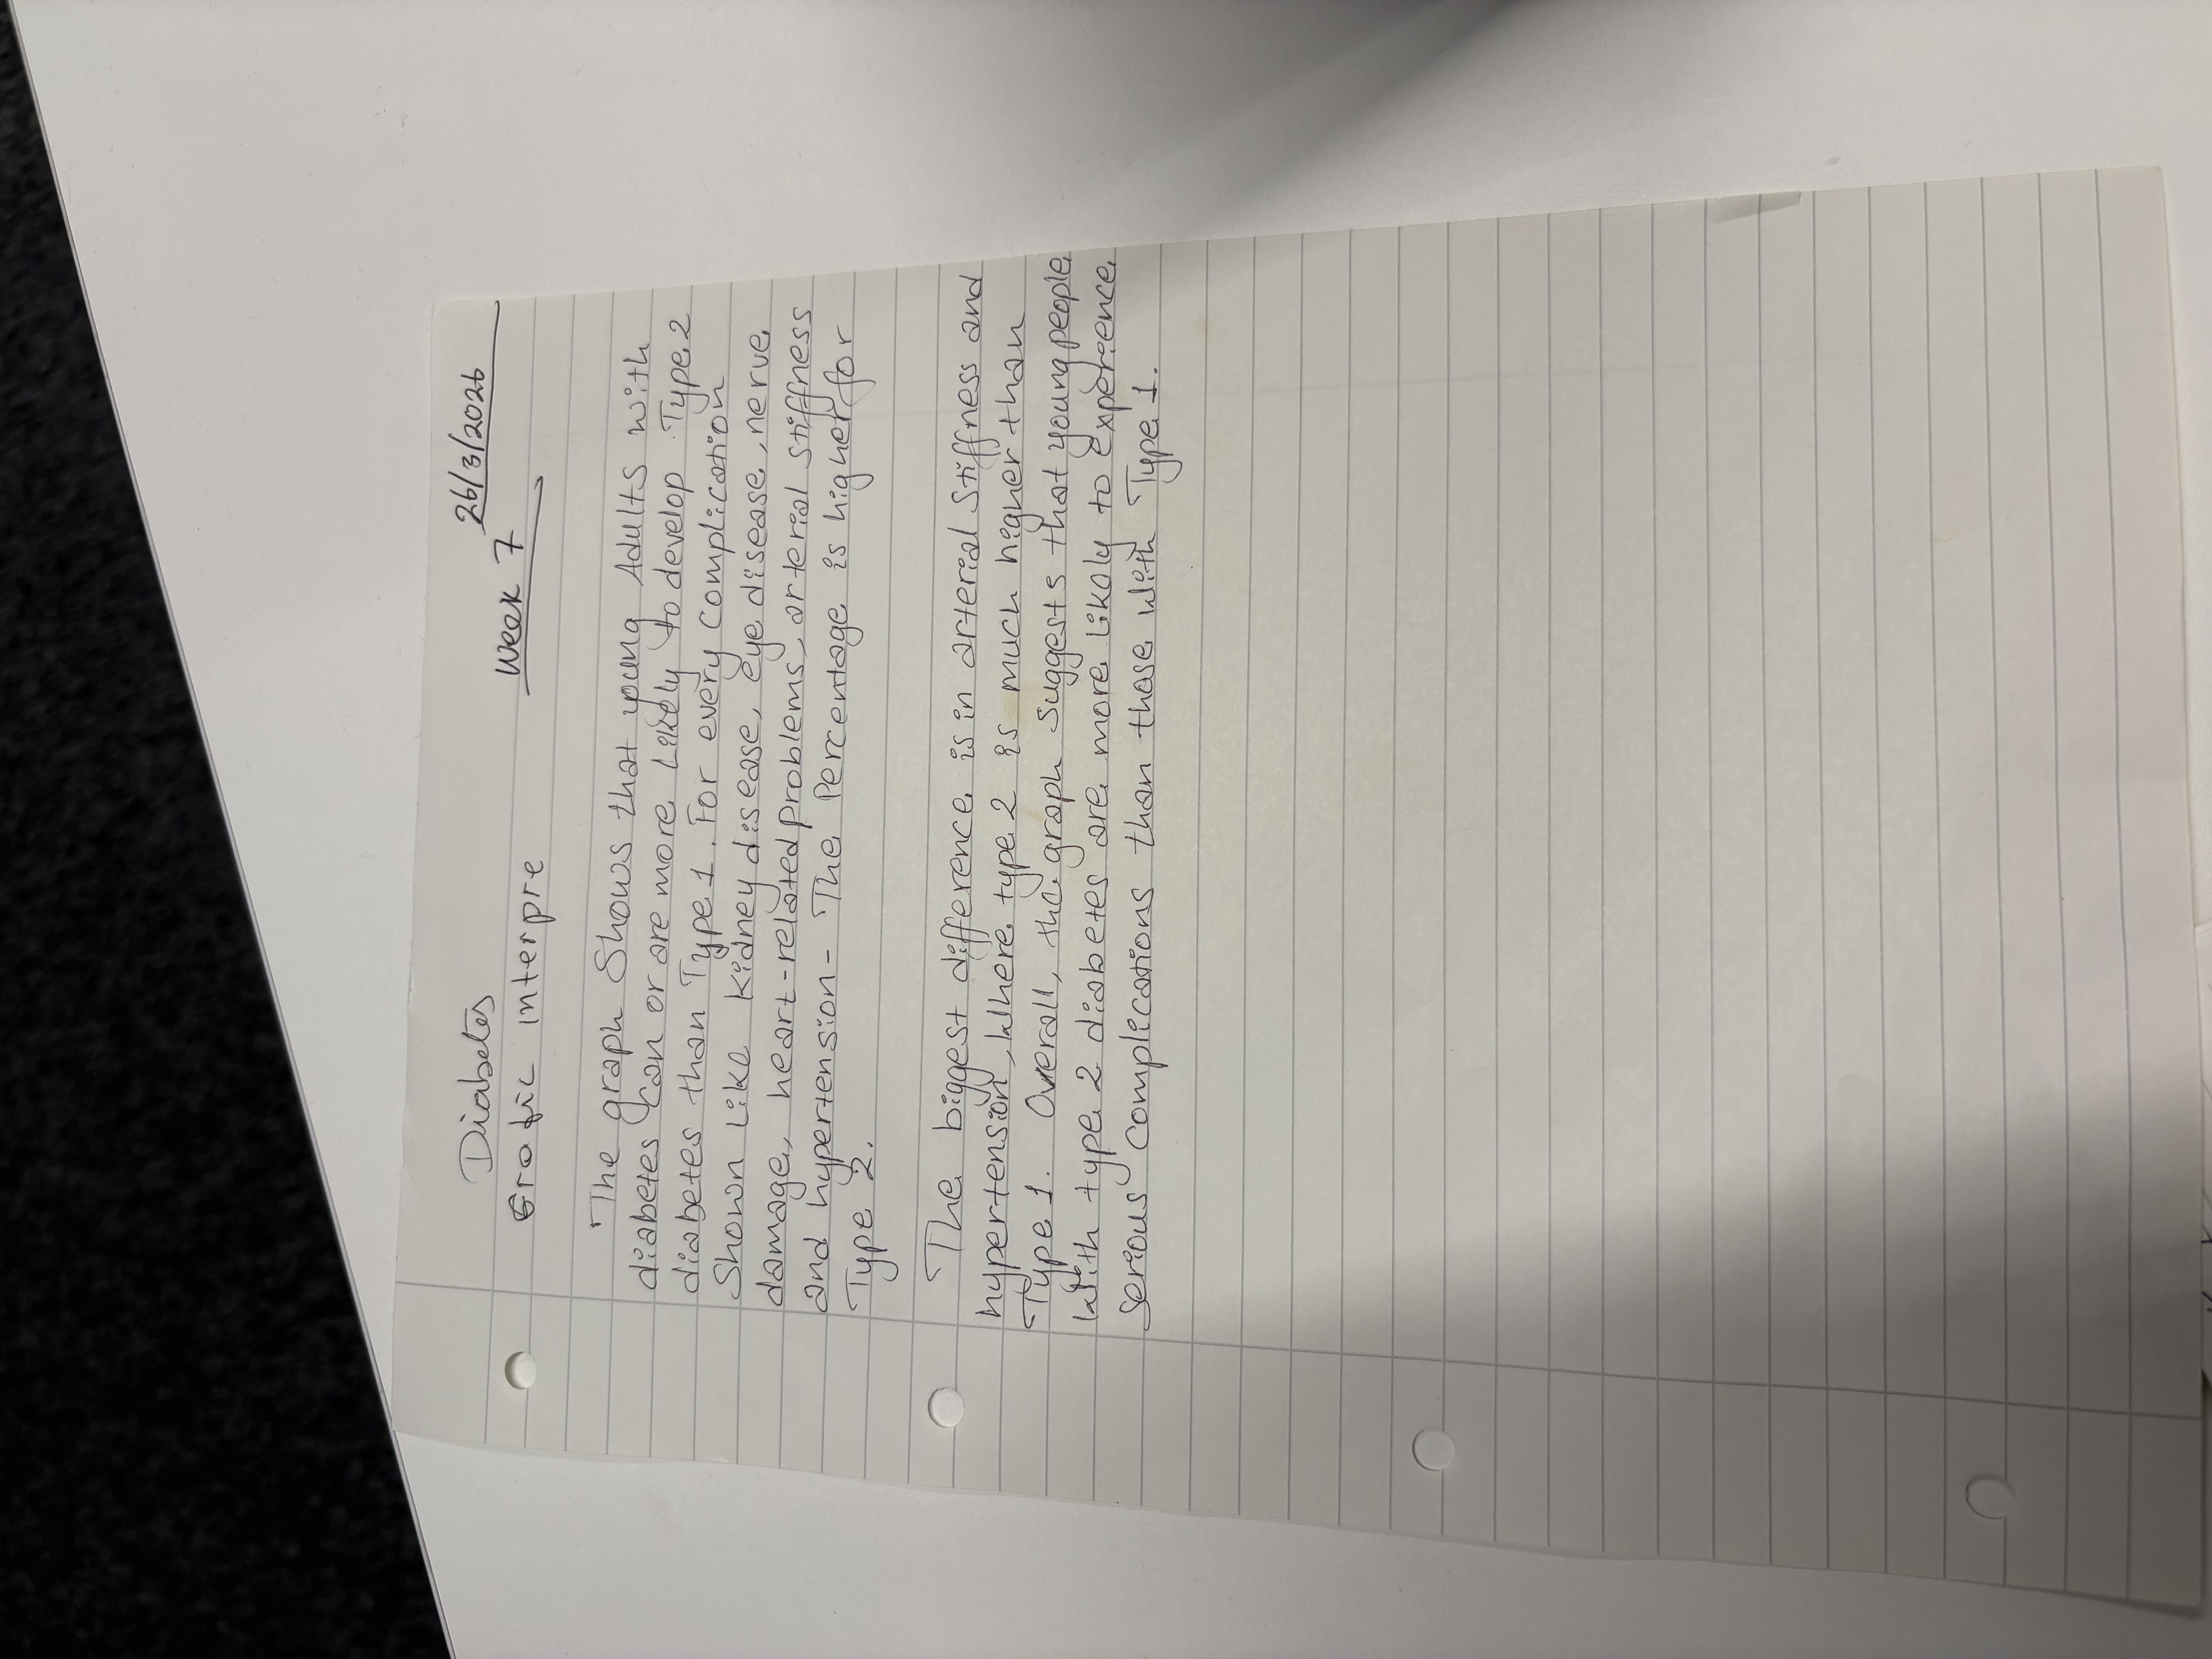 26/3/2026
Diabetes
Week 7
Grafic interpre
The graph Shows that young Adults with
diabetes Can or are more Likely to develop Type 2
diabetes than Type 1. For every complication
Shown Like kidney disease, eye disease, nerve
damage, heart-related problems, arterial stiffness
and hypertension- The Percentage is higher for
Type 2.
The biggest difference is in arterial stiffness and
hypertension, Where type 2 is much higher than
Type 1. Overall, the graph suggests that young people
With type 2 diabetes are more Likely to experience
serious complications than those With Type 1.